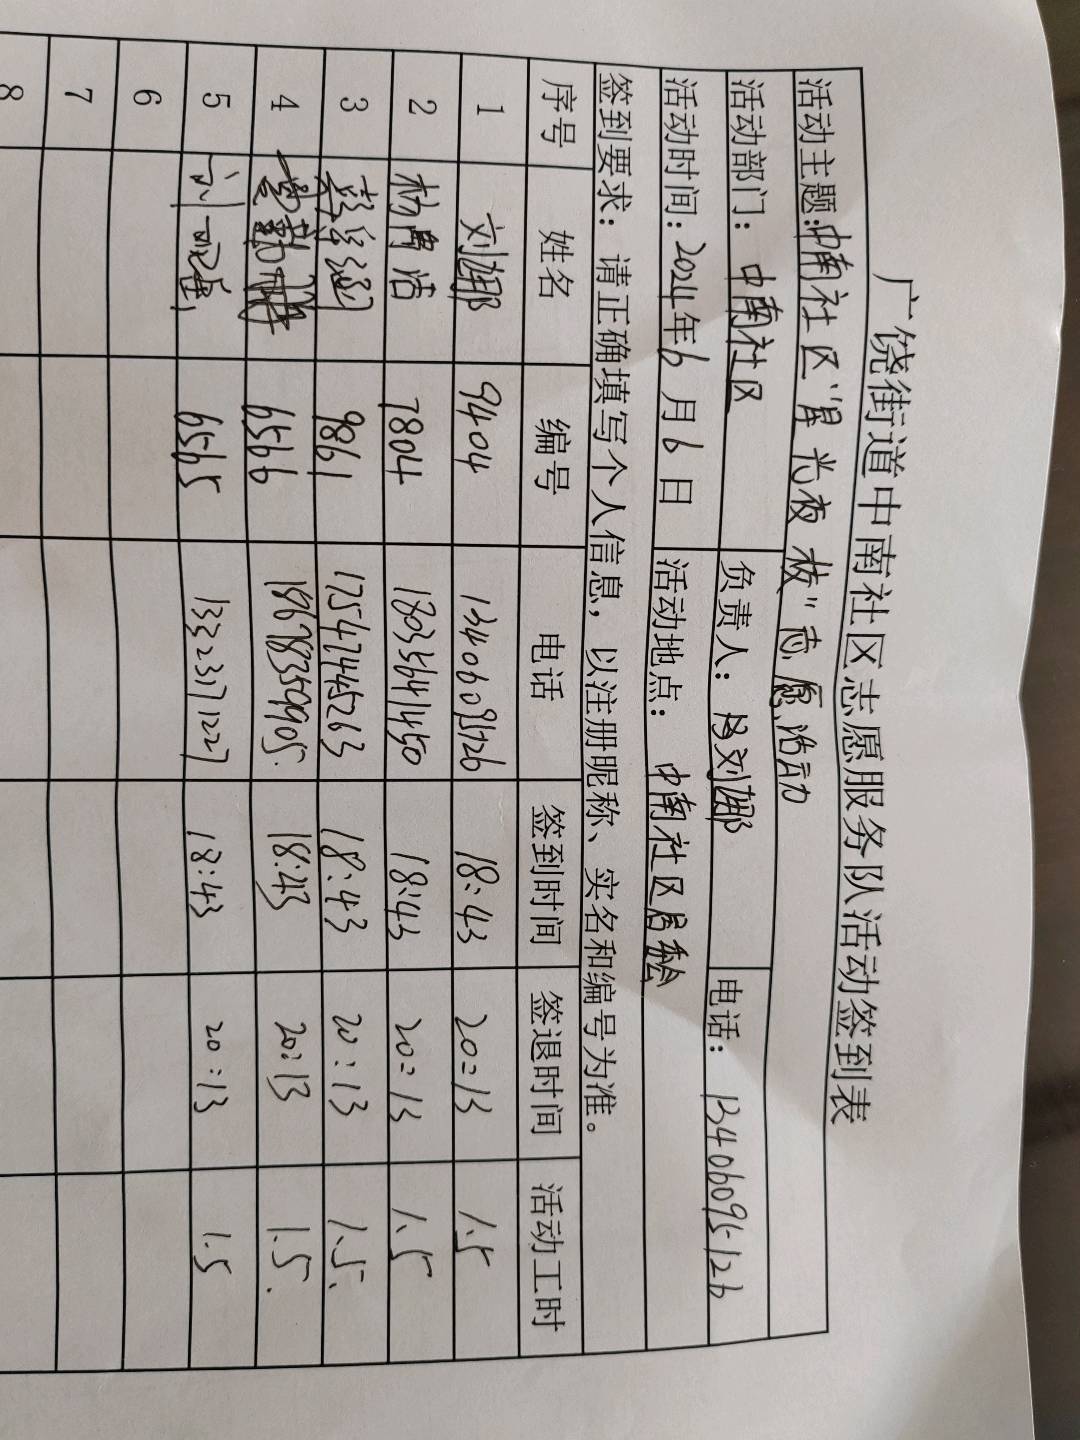 广饶街道中南社区志愿服务队活动签到表
活动主题:中南社区"星光夜校"志愿活动
活动部门: 中南社区 负责人: 刘娜 电话: 13406095126
活动时间: 2024年6月6日 活动地点: 中南社区居委会
签到要求: 请正确填写个人信息, 以注册昵称、实名和编号为准。
序号 姓名 编号 电话 签到时间 签退时间 活动工时
1 刘娜 9404 13406095126 18:43 20=13 1.5
2 杨 洁 7804 18035641450 18:43 20=13 1.5
3 9861 17547445263 18:43 20:13 1.5.
4 6566 18678359905. 18:43 20:13 1.5.
5 刘 6565 13323171227 18:43 20:13 1.5
6
7
8